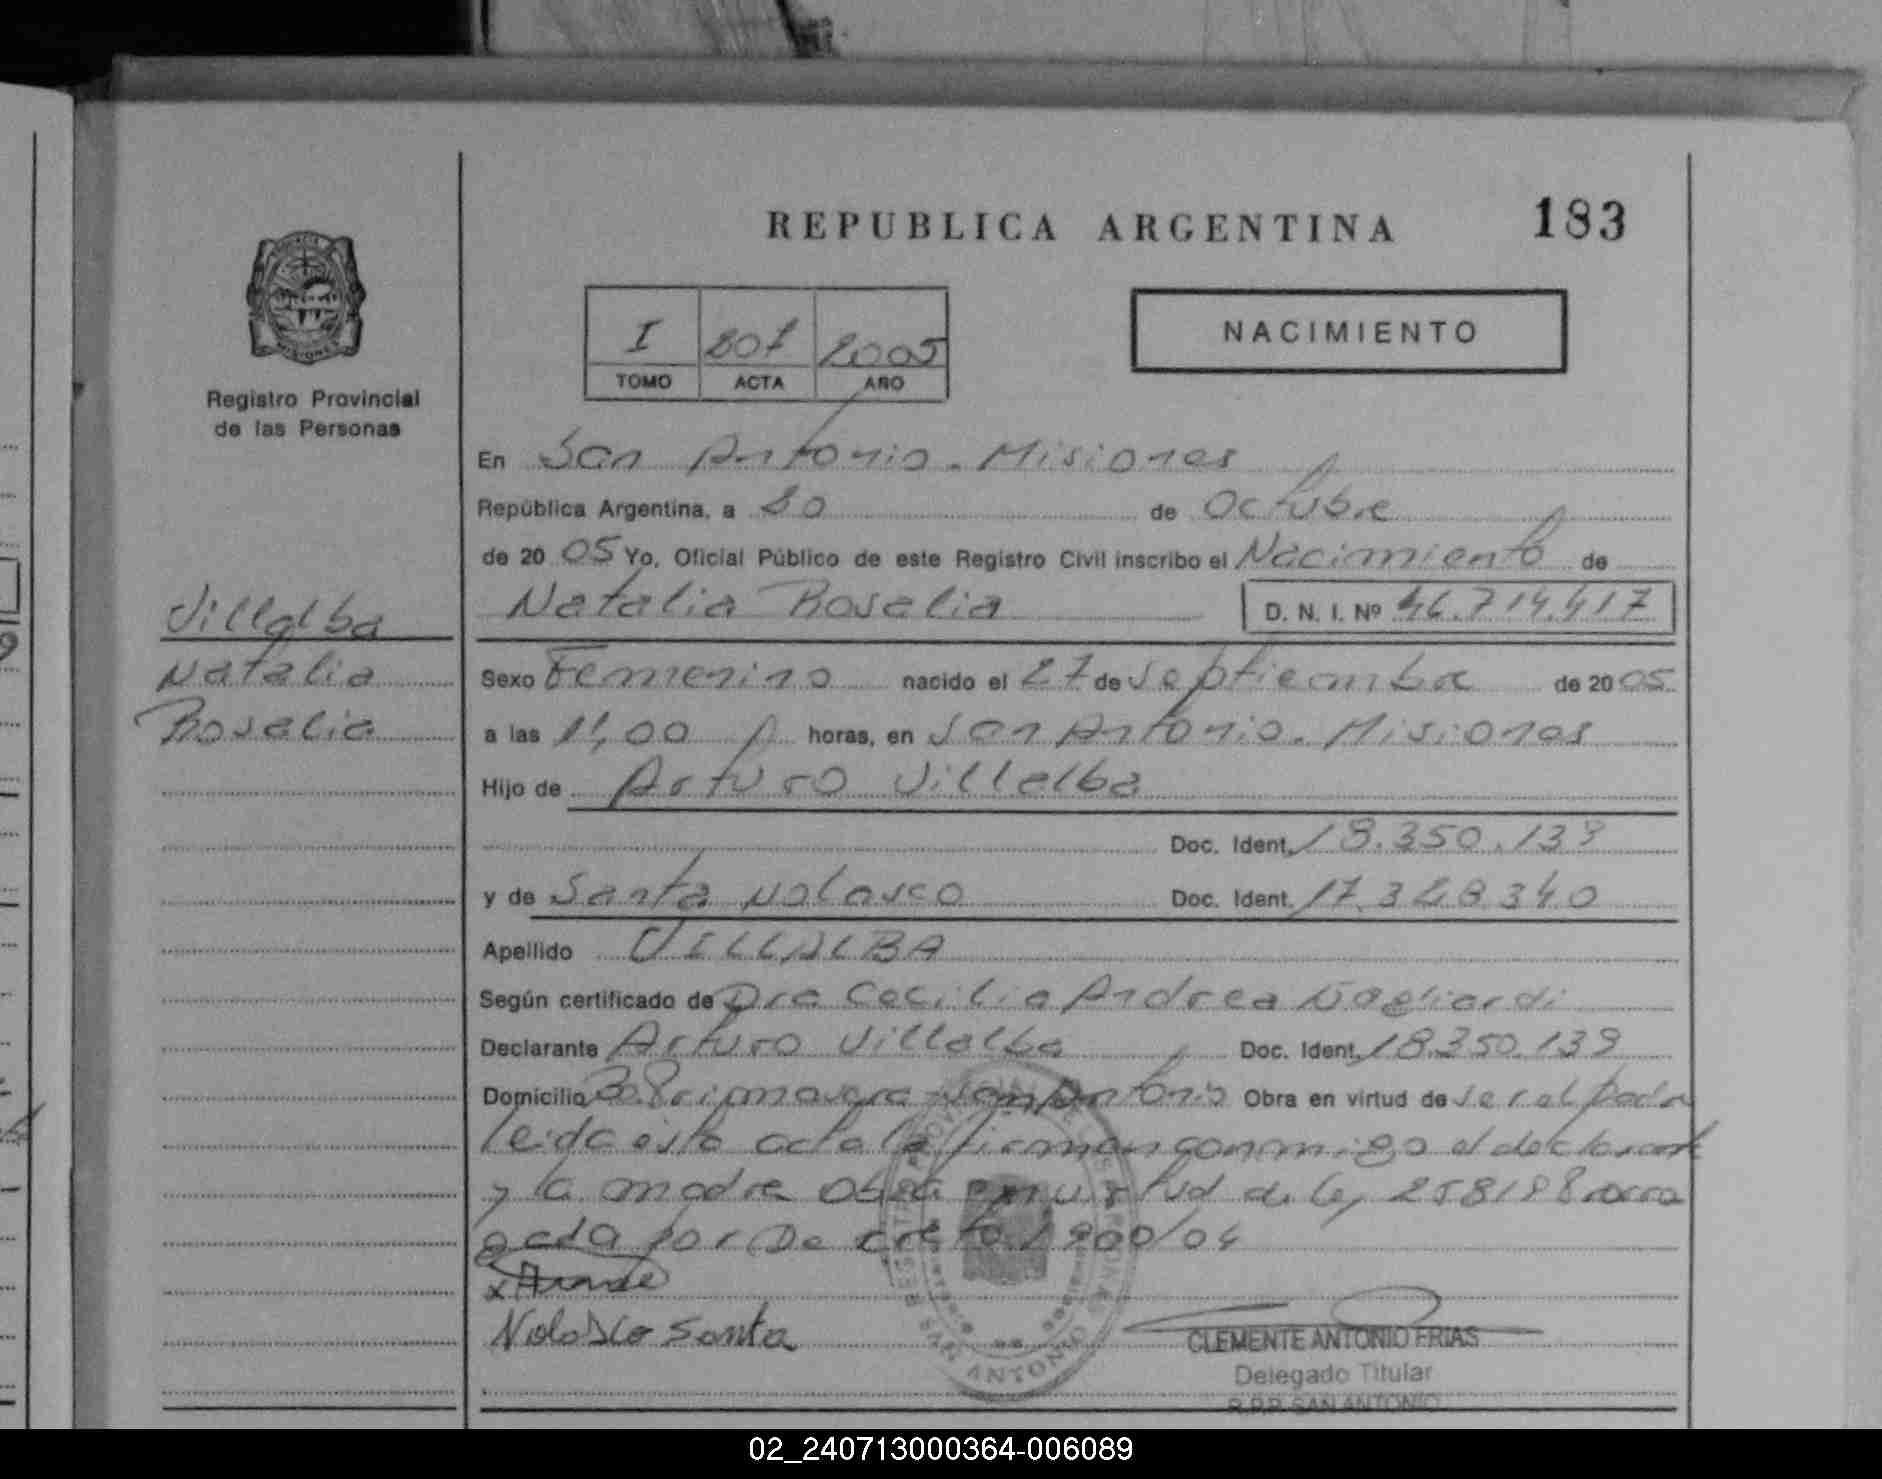 REPUBLICA ARGENTINA
183
NACIMIENTO
I 207 2005
TOMO ACTA AÑO
MISIONES
Registro Provincial
de las Personas
Villalba
Natalia
Rosalia
En San Antonio - Misiones
República Argentina, a 20 de Octubre
de 20 05 Yo, Oficial Público de este Registro Civil inscribo el Nacimiento de
Natalia Rosalia D. N. I. Nº 46.714.417
Sexo Femenino nacido el 27 de Septiembre de 20 05
a las 11,00 horas, en San Antonio. Misiones
Hijo de Arturo Villalba
Doc. Ident. 18.350.139
y de Santa Nolasco Doc. Ident. 17.328.340
Apellido VILLALBA
Según certificado de Dra Cecilia Andrea
Declarante Arturo Villalba Doc. Ident. 18.350.139
Domicilio Bº Primavera San Antonio Obra en virtud de ser el padre
leida esta acta la firman conmigo el declarante
y la madre Obra en virtud de ley por Decreto 1900/04
Nolasco Santa
SAN ANTONIO
CLEMENTE ANTONIO FRIAS
Delegado Titular
R.P.P. SAN ANTONIO
02_240713000364-006089